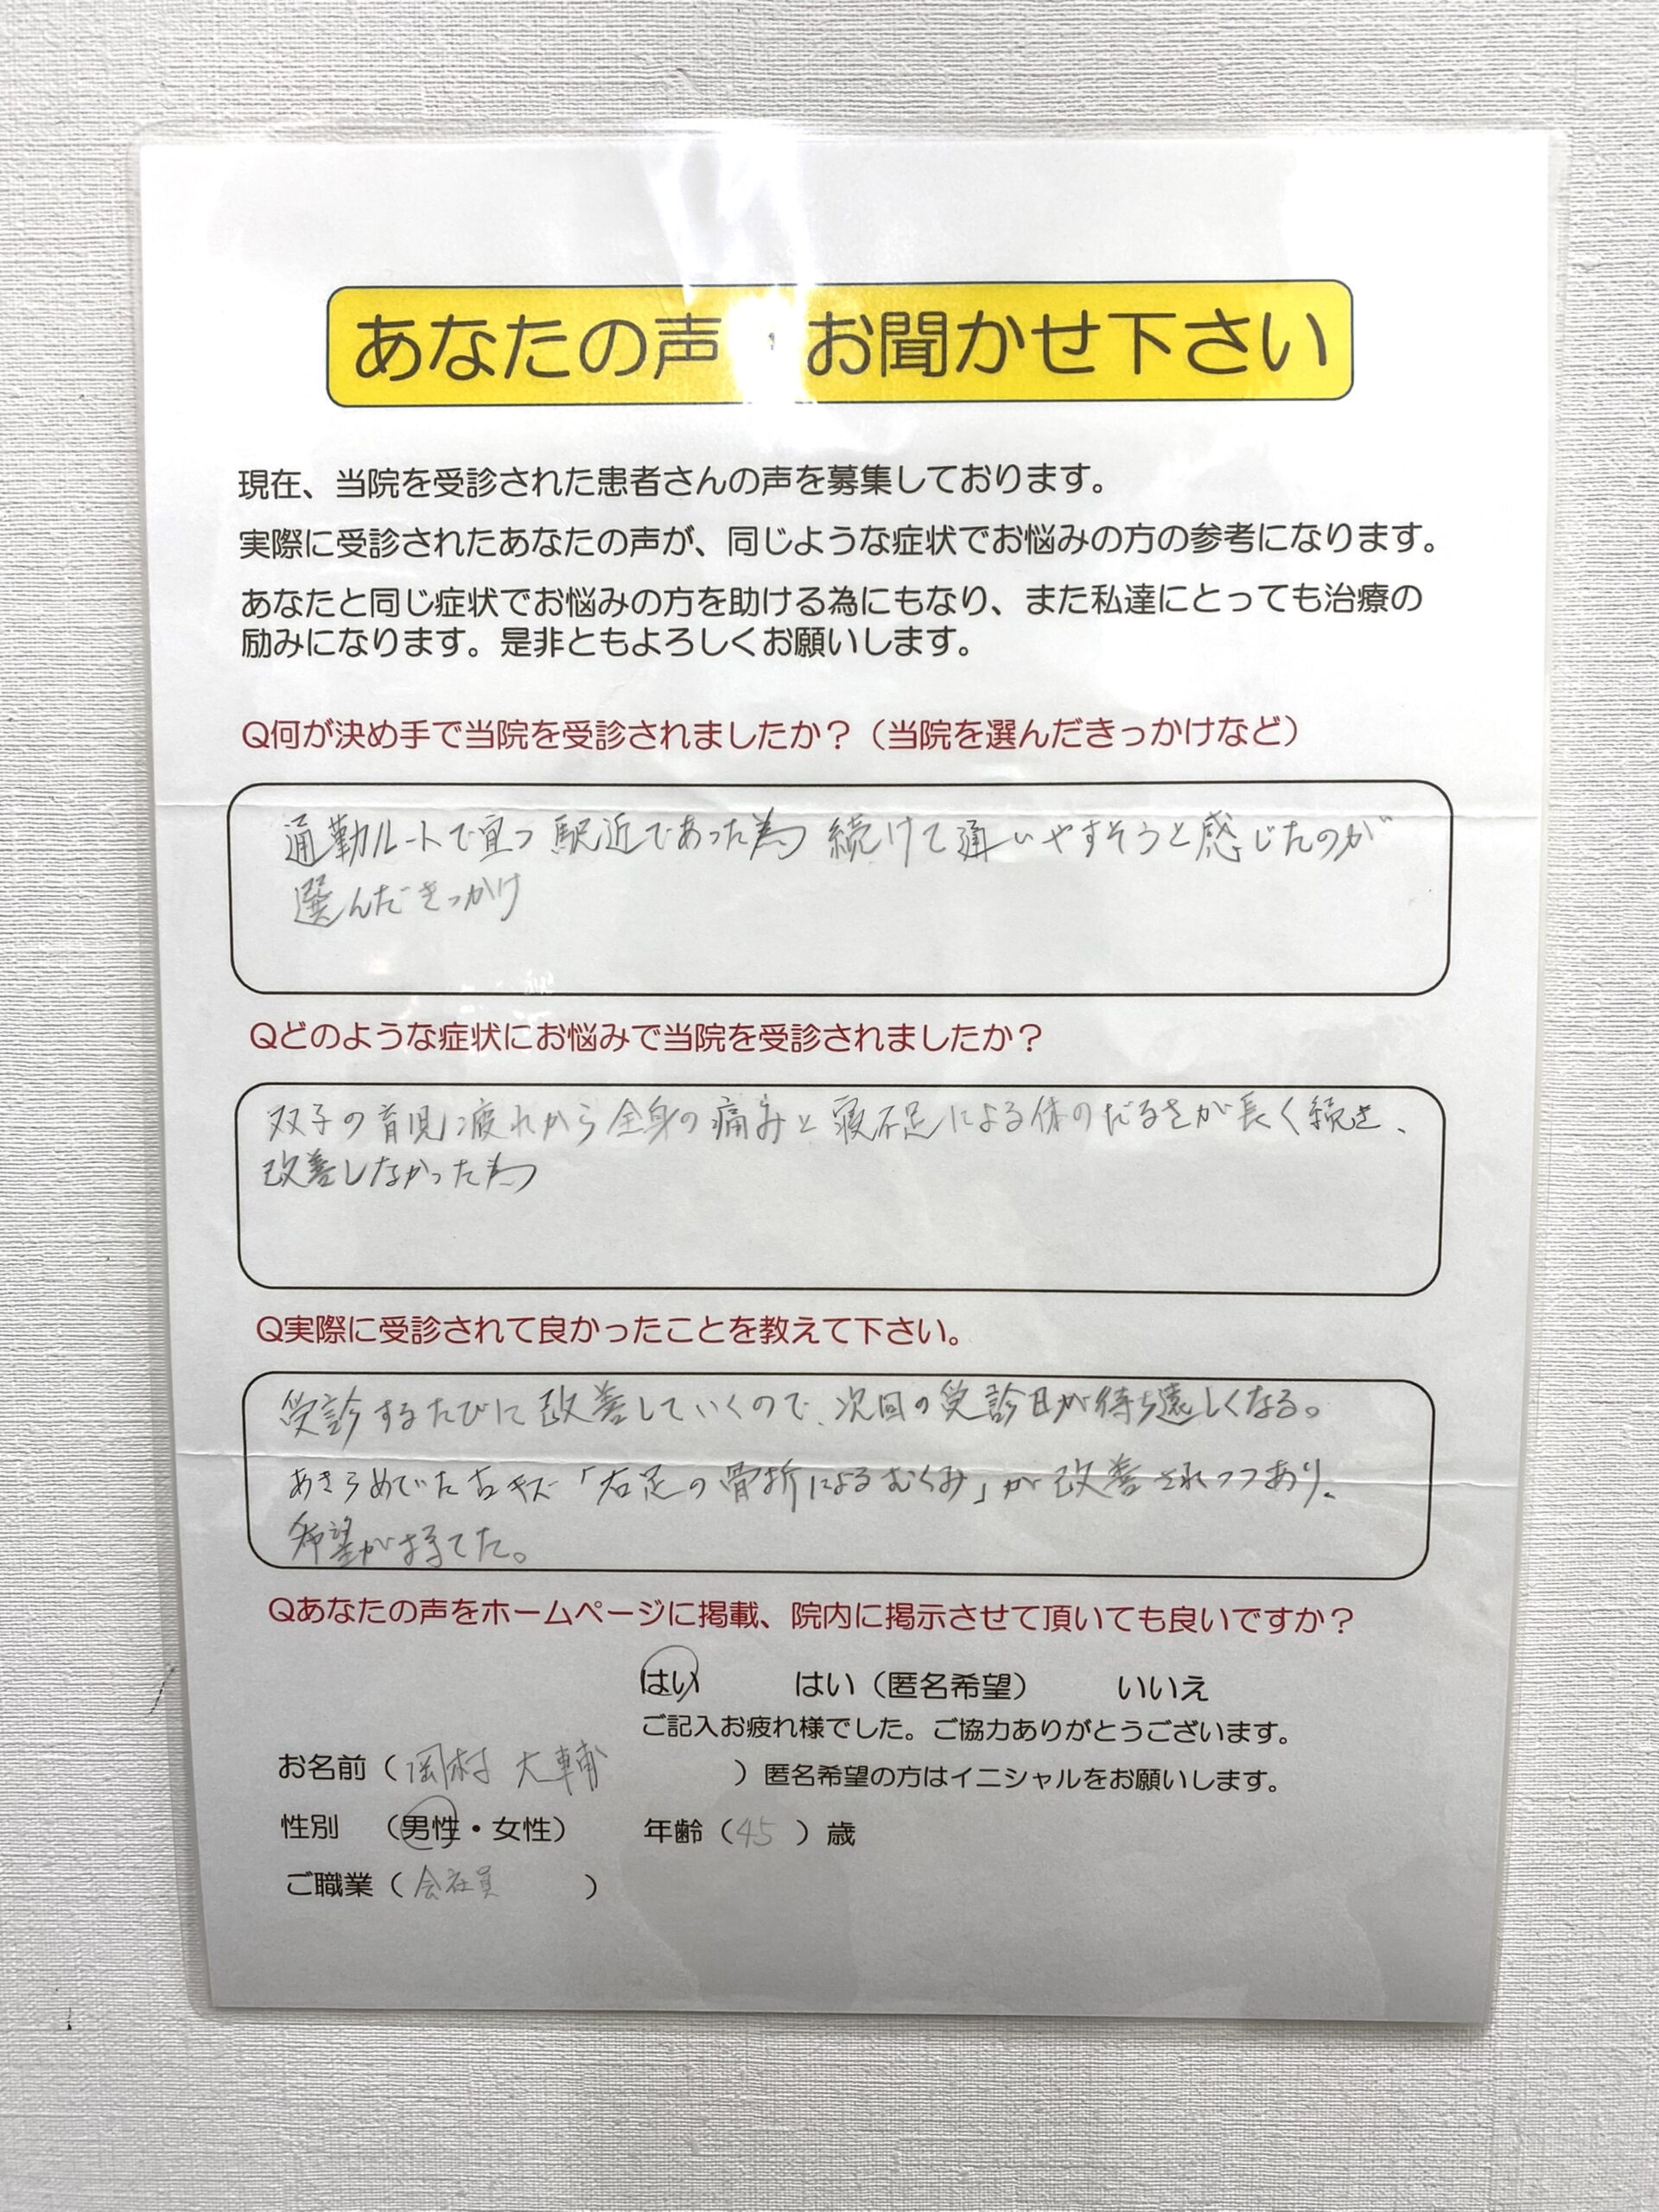 あなたの声 お聞かせ下さい
現在、当院を受診された患者さんの声を募集しております。
実際に受診されたあなたの声が、同じような症状でお悩みの方の参考になります。
あなたと同じ症状でお悩みの方を助ける為にもなり、また私達にとっても治療の
励みになります。是非ともよろしくお願いします。
Q何が決め手で当院を受診されましたか？（当院を選んだきっかけなど）
通勤ルートで宜つ駅近であった為 続けて通いやすそうと感じたのが
選んだきっかけ
Qどのような症状にお悩みで当院を受診されましたか？
双子の育児疲れから全身の痛みと寝不足による体のだるさが長く続き、
改善しなかった為
Q実際に受診されて良かったことを教えて下さい。
受診するたびに改善していくので、次回の受診日が待ち遠しくなる。
あきらめていた古キズ「右足の骨折によるむくみ」が改善されつつあり、
希望が持てた。
Qあなたの声をホームページに掲載、院内に掲示させて頂いても良いですか？
はい はい（匿名希望） いいえ
ご記入お疲れ様でした。ご協力ありがとうございます。
お名前（岡村 大輔 ）匿名希望の方はイニシャルをお願いします。
性別 （男性・女性） 年齢（45）歳
ご職業（会社員 ）